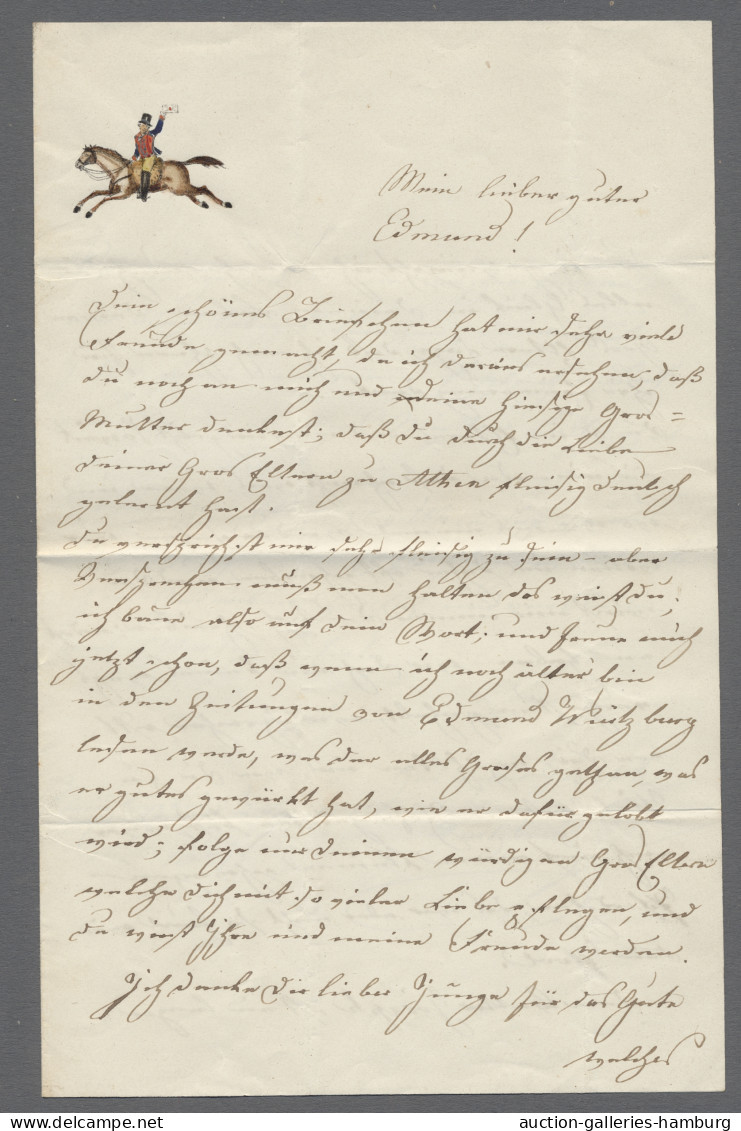 Mein lieber guter
Edmund!
Dein schönes Briefchen hat mir sehr viele
Freude gemacht, da ich daraus ersehen, daß
du noch an mich und deine hiesige Gros=
Mutter denkest; daß du durch die Liebe
deiner Gros Eltern zu Athen fleisig deutsch
gelernt hast.
Du versprichst mir sehr fleisig zu sein – aber
Versprechen muß man halten das weist du;
ich baue also auf dein Wort; und freue mich
jetzt schon, daß wenn ich noch älter bin
in den Zeitungen von Edmund Würtzburg
lesen werde, was der alles Groses gethan, was
er gutes gewürkt hat, wie er dafür gelobt
wird; folge nur deinen würdigen Gros Eltern
welche dich mit so vieler Liebe pflegen, und
du wirst Ihre und meine Freude werden.
Ich danke dir lieber Junge für das Gute
welches
auction-galleries-hamburg